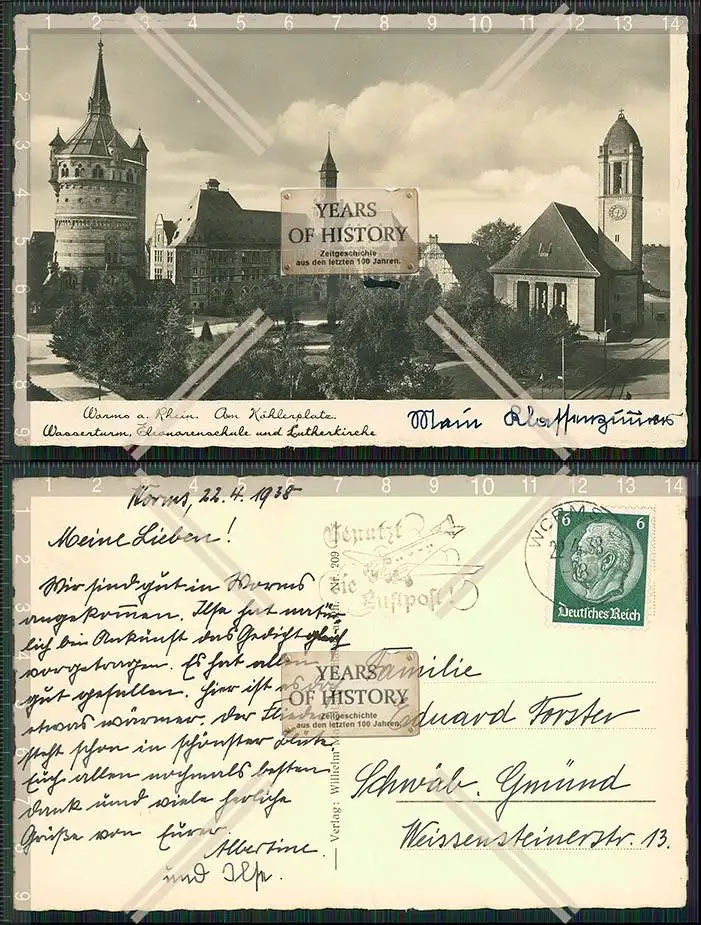 1 2 3 4 5 6 7 8 9 10 11 12 13 14
1
2
3
4
5
6
7
8
9
YEARS
OF HISTORY
Zeitgeschichte
aus den letzten 100 Jahren.
Worms a. Rhein. Am Köhlerplatz.
Wasserturm, Eleonorenschule und Lutherkirche
Mein Klassenzimmer
1 2 3 4 5 6 7 8 9 10 11 12 13 14
1
2
3
4
5
6
7
8
9
Worms, 22.4.1938
Meine Lieben!
Wir sind gut in Worms
angekommen. Ilse hat natür
lich bei Ankunft das Gedicht gleich
vorgetragen. Es hat allen
gut gefallen. Hier ist es
etwas wärmer. Der Flieder
steht schon in schönster Blüte.
Euch allen nochmals besten
Dank und viele herzliche
Grüße von Eurer
Albertine.
und Ilse.
Benutzt
die
Luftpost!
WORMS
22.4.38
6 6
Deutsches Reich
Verlag: Wilhelm
Nr. 209
YEARS
OF HISTORY
Zeitgeschichte
aus den letzten 100 Jahren.
Familie
Eduard Forster
Schwäb. Gmünd
Weissensteinerstr. 13.